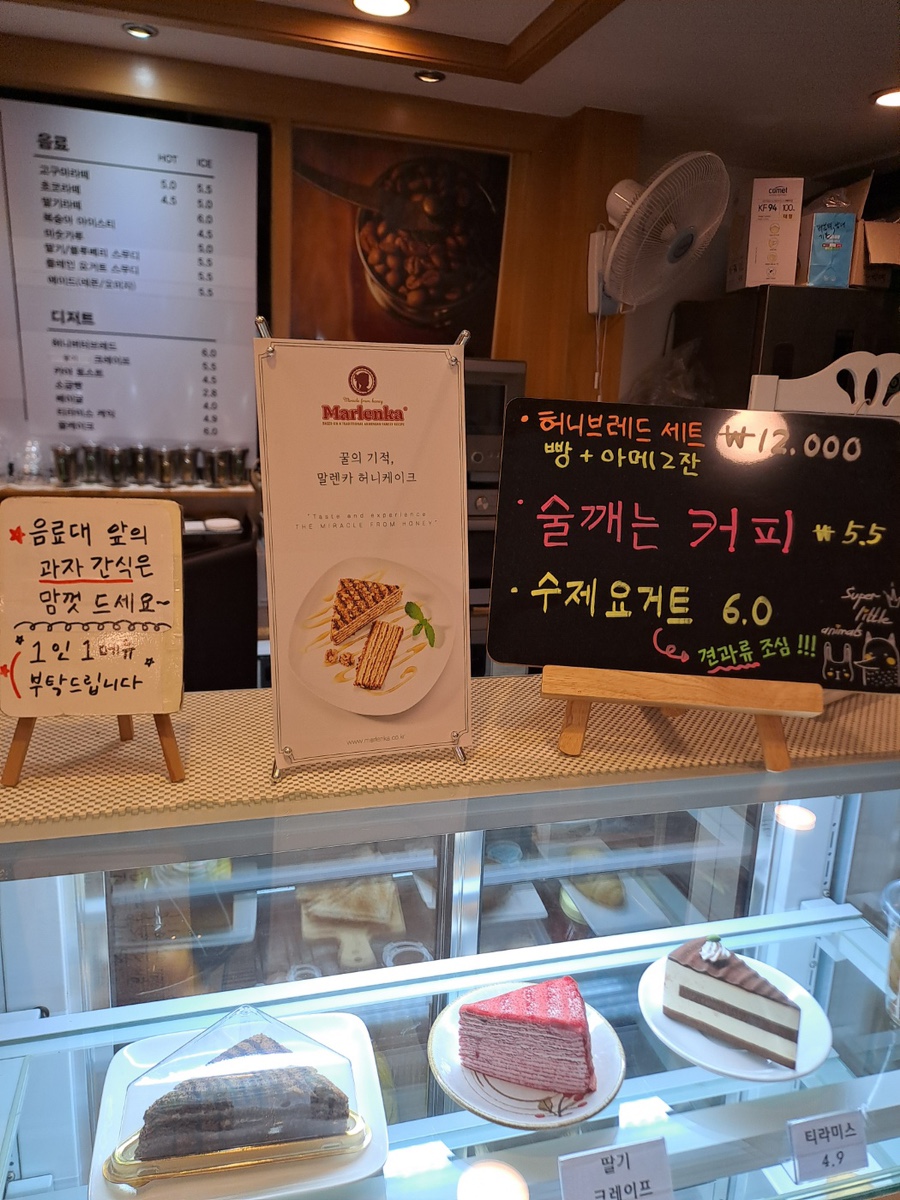 음료
HOT ICE
고구마라떼 5.0 5.5
초코라떼 4.5 5.0
딸기라떼 6.0
복숭아 아이스티 4.5
미숫가루 5.0
딸기/블루베리 스무디 5.5
플레인 요거트 스무디 5.5
에이드(레몬/오미자) 5.5
디저트
허니버터브레드 6.0
크레이프 5.5
카야 토스트 4.5
소금빵 2.8
베이글 4.0
티라미스 케익 4.9
꿀케이크 6.0
Miracle from honey
Marlenka®
꿀의 기적,
말렌카 허니케이크
"Taste and experience
THE MIRACLE FROM HONEY"
www.marlenka.co.kr
음료대 앞의
과자 간식은
맘껏 드세요~
1인 1메뉴
부탁드립니다
camel
KF94 100
대형
· 허니브레드 세트 ₩12.000
빵 + 아메2잔
· 술깨는 커피 ₩5.5
· 수제요거트 6.0
견과류 조심!!!
Super
little
animals
딸기
크레이프
티라미스
4.9